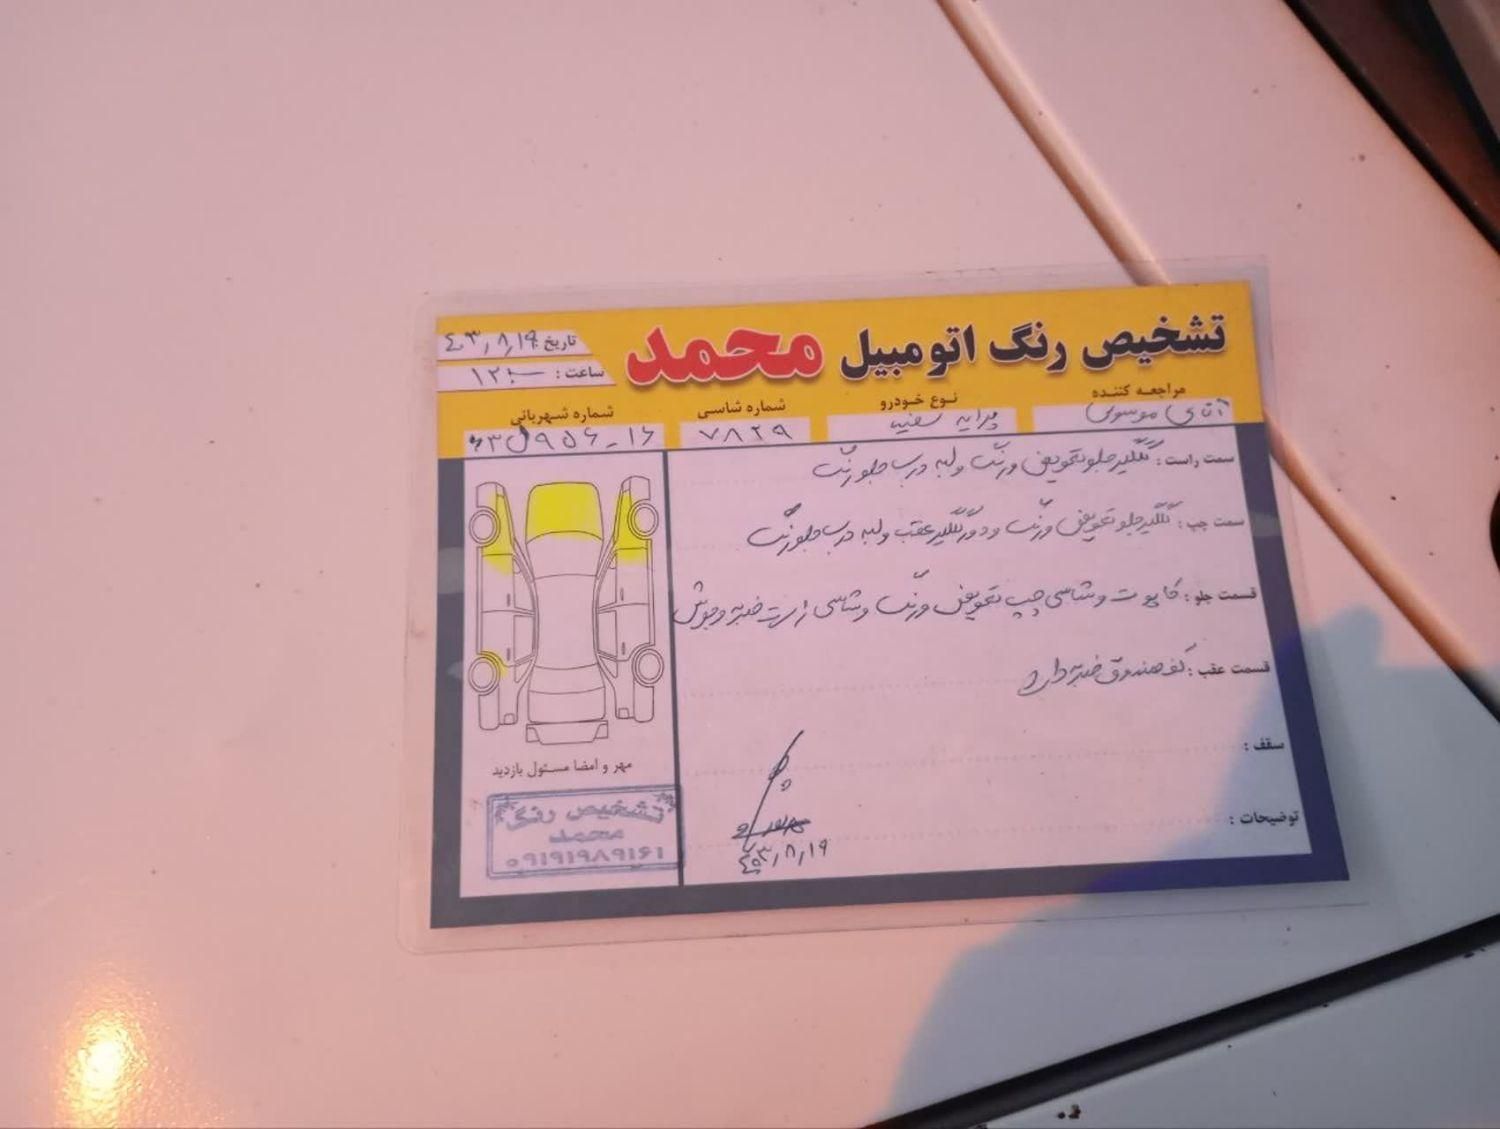 تشخیص رنگ اتومبیل محمد
تاریخ: ۴۰۳/۸/۱۹
ساعت: ۱۲:۰۰
مراجعه کننده
آقای موسوی
نوع خودرو
پراید سفید
شماره شاسی
۷۸۲۹
شماره شهربانی
۶۳ل۹۵۶-۱۶
سمت راست: گلگیر جلو تعویض و رنگ و لبه درب جلو رنگ
سمت چپ: گلگیر جلو تعویض و رنگ و دور گلگیر عقب و لبه درب جلو رنگ
قسمت جلو: کاپوت و شاسی چپ تعویض و رنگ و شاسی راست ضربه و جوش
قسمت عقب: کف صندوق ضربه دارد
سقف:
توضیحات:
۴۰۳/۸/۱۹
مهر و امضا مسئول بازدید
تشخیص رنگ
محمد
۰۹۱۹۱۹۸۹۱۶۱